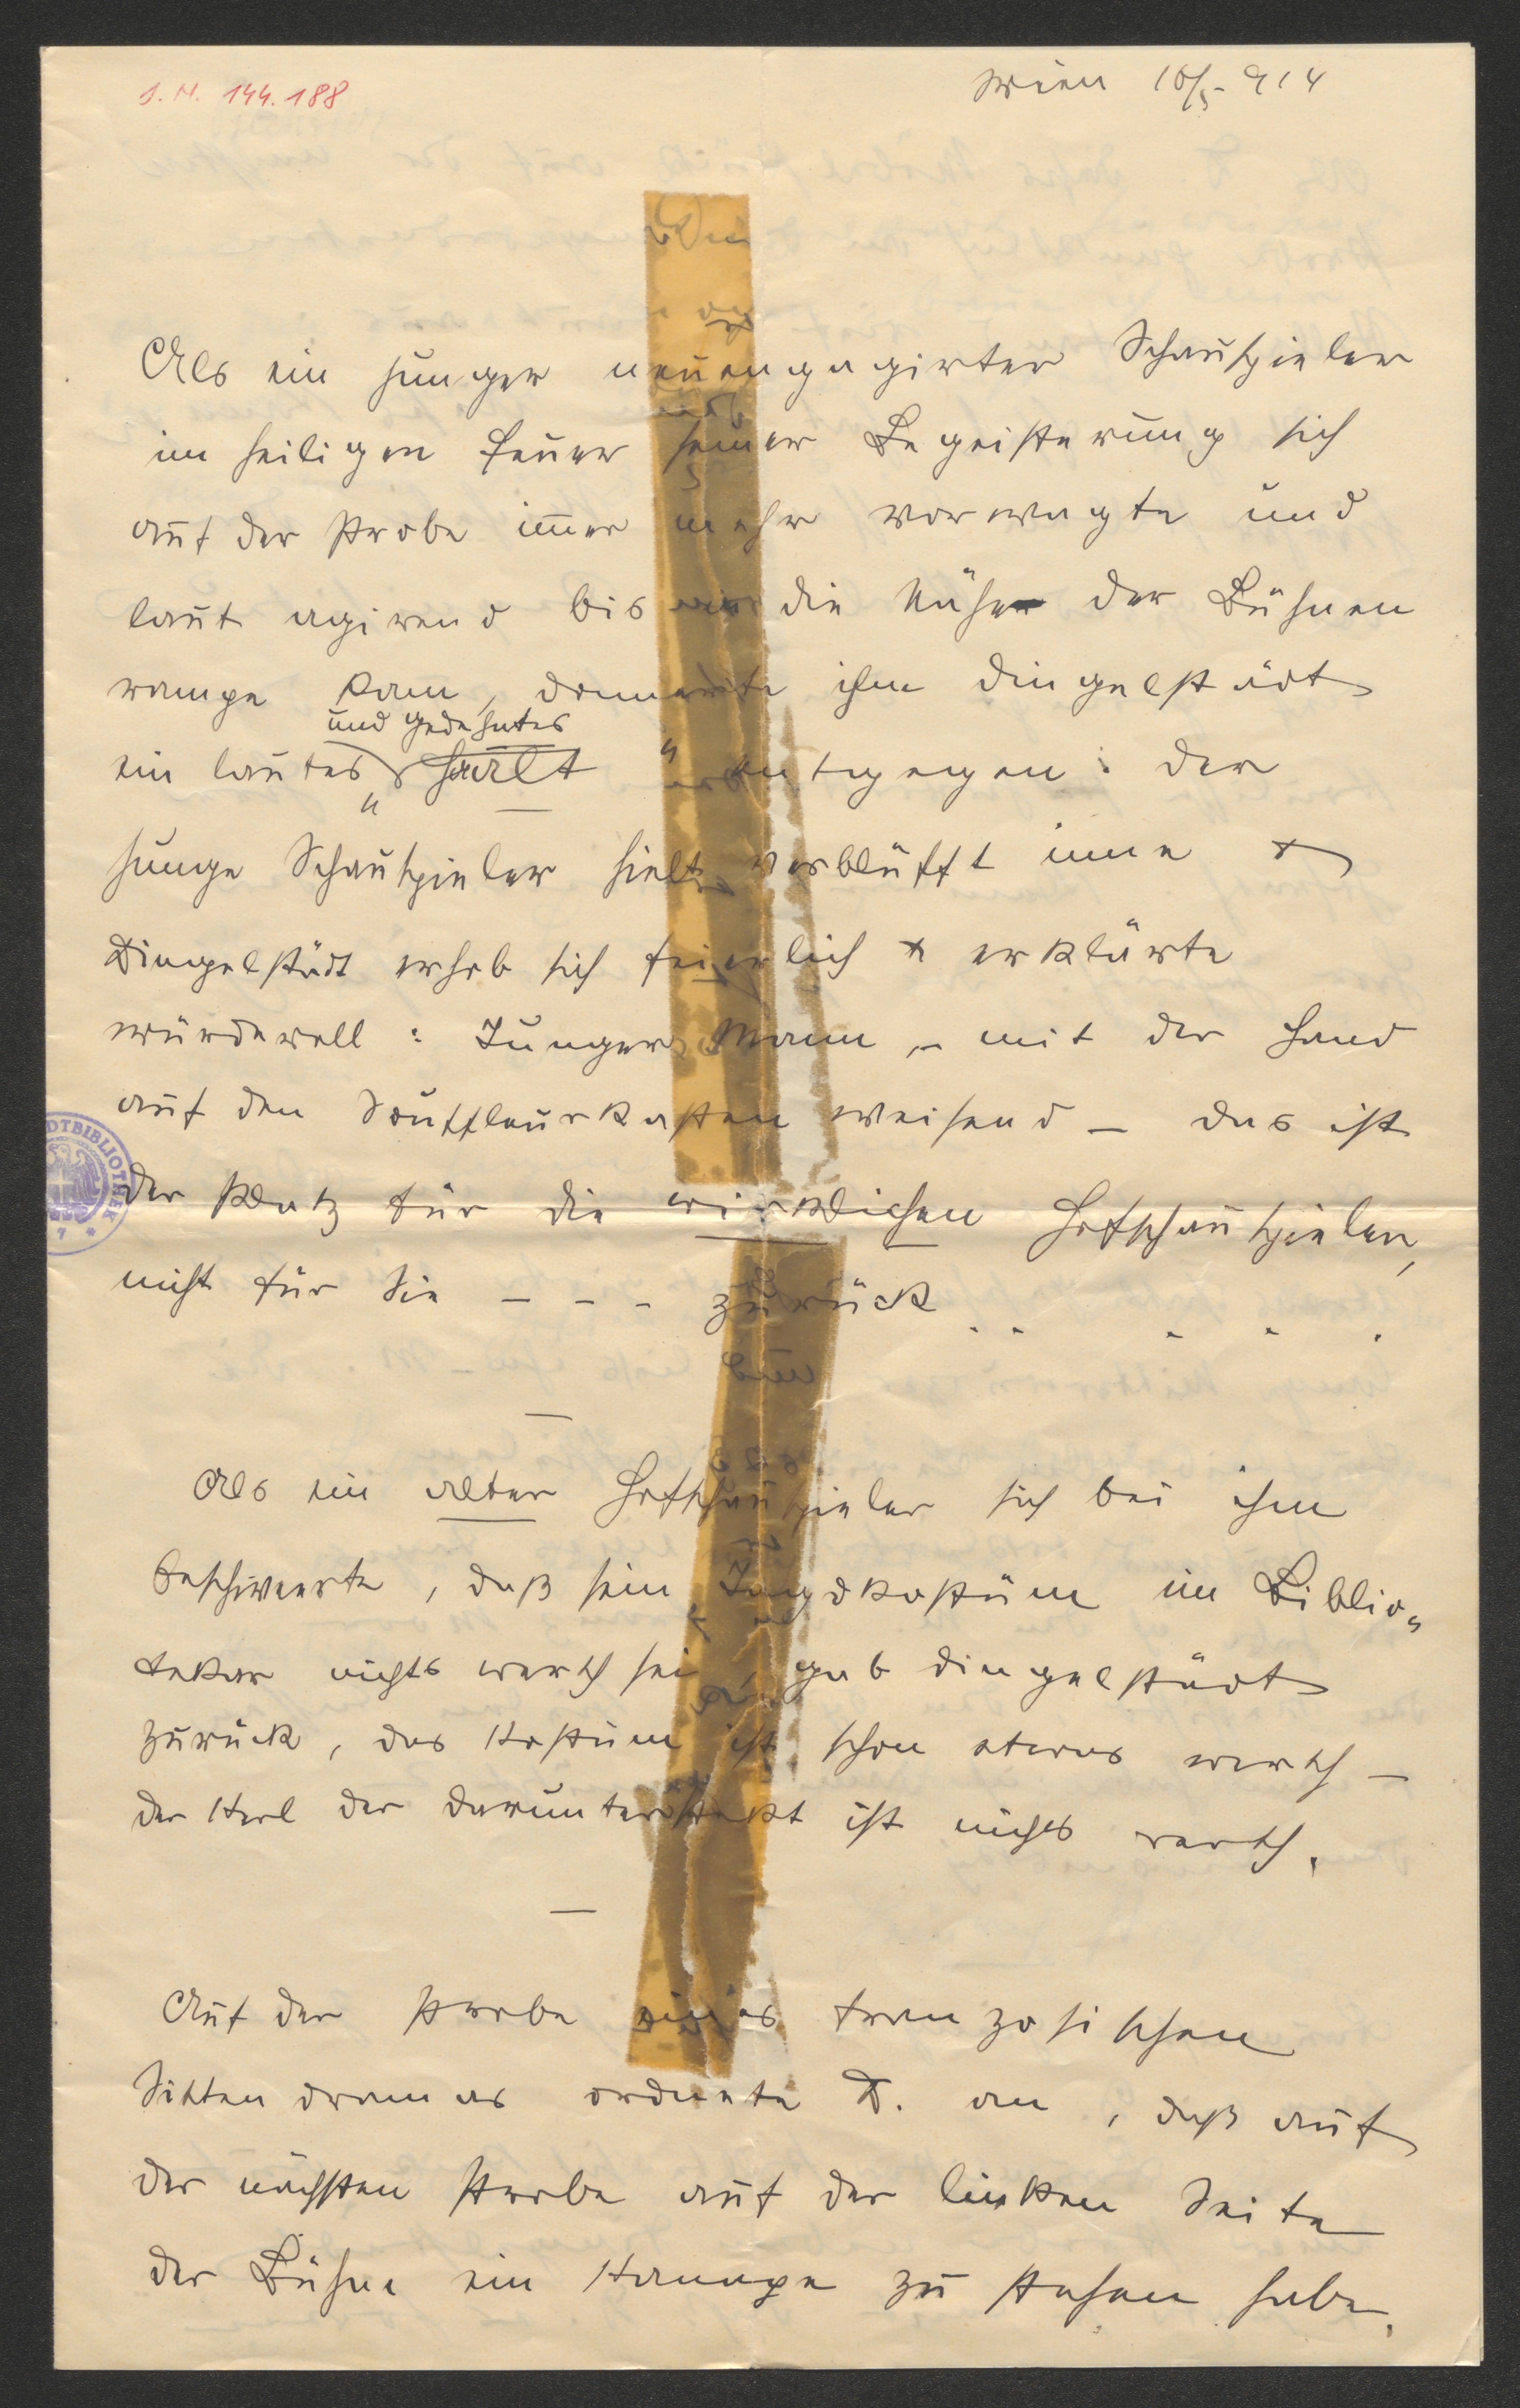 J. N. 144.188
Wien 18/5 914
Als ein junger neuengagirter Schauspieler
im heiligen Feuer seiner Begeisterung sich
auf der Probe im̅er mehr vorwagte und
laut agirend bis in die Nähe der Bühnen
rampe kam, donnerte ihm Dingelstädt
und gedehntes
ein lautes „Haalt“ entgegen: der
junge Schauspieler hielt verblüfft inne
Dingelstädt erhob sich feierlich & erklärte
würdevoll: Junger Mann, – mit der Hand
auf den Souffleurkasten weisend – das ist
der Platz für die wirklichen Hofschauspieler,
nicht für Sie – – – zurück . . . . .
Als ein alter Hofschauspieler sich bei ihm
beschwerte, daß sein Jagdkostüm im Biblio„
tekar nichts werth sei, gab Dingelstädt
zurück, das Kostüm ist schon etwas werth –
der Kerl der daruntersteckt ist nichts werth.
Auf der Probe eines französischen
Sittendramas ordnete D. an, daß auf
der nächsten Probe auf der linken Seite
der Bühne ein Kanape zu stehen habe.
DTBIBLIOTHEK